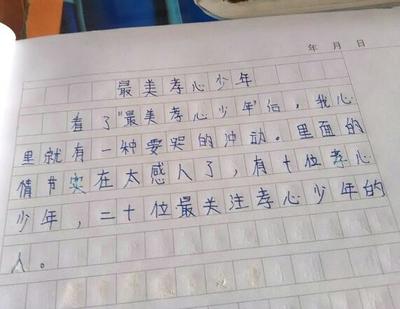 年 月 日
最美孝心少年
看了"最美孝心少年"后，我心
里就有一种要哭的冲动。里面的
情节实在太感人了，有十位孝心
少年，二十位最关注孝心少年的
人。